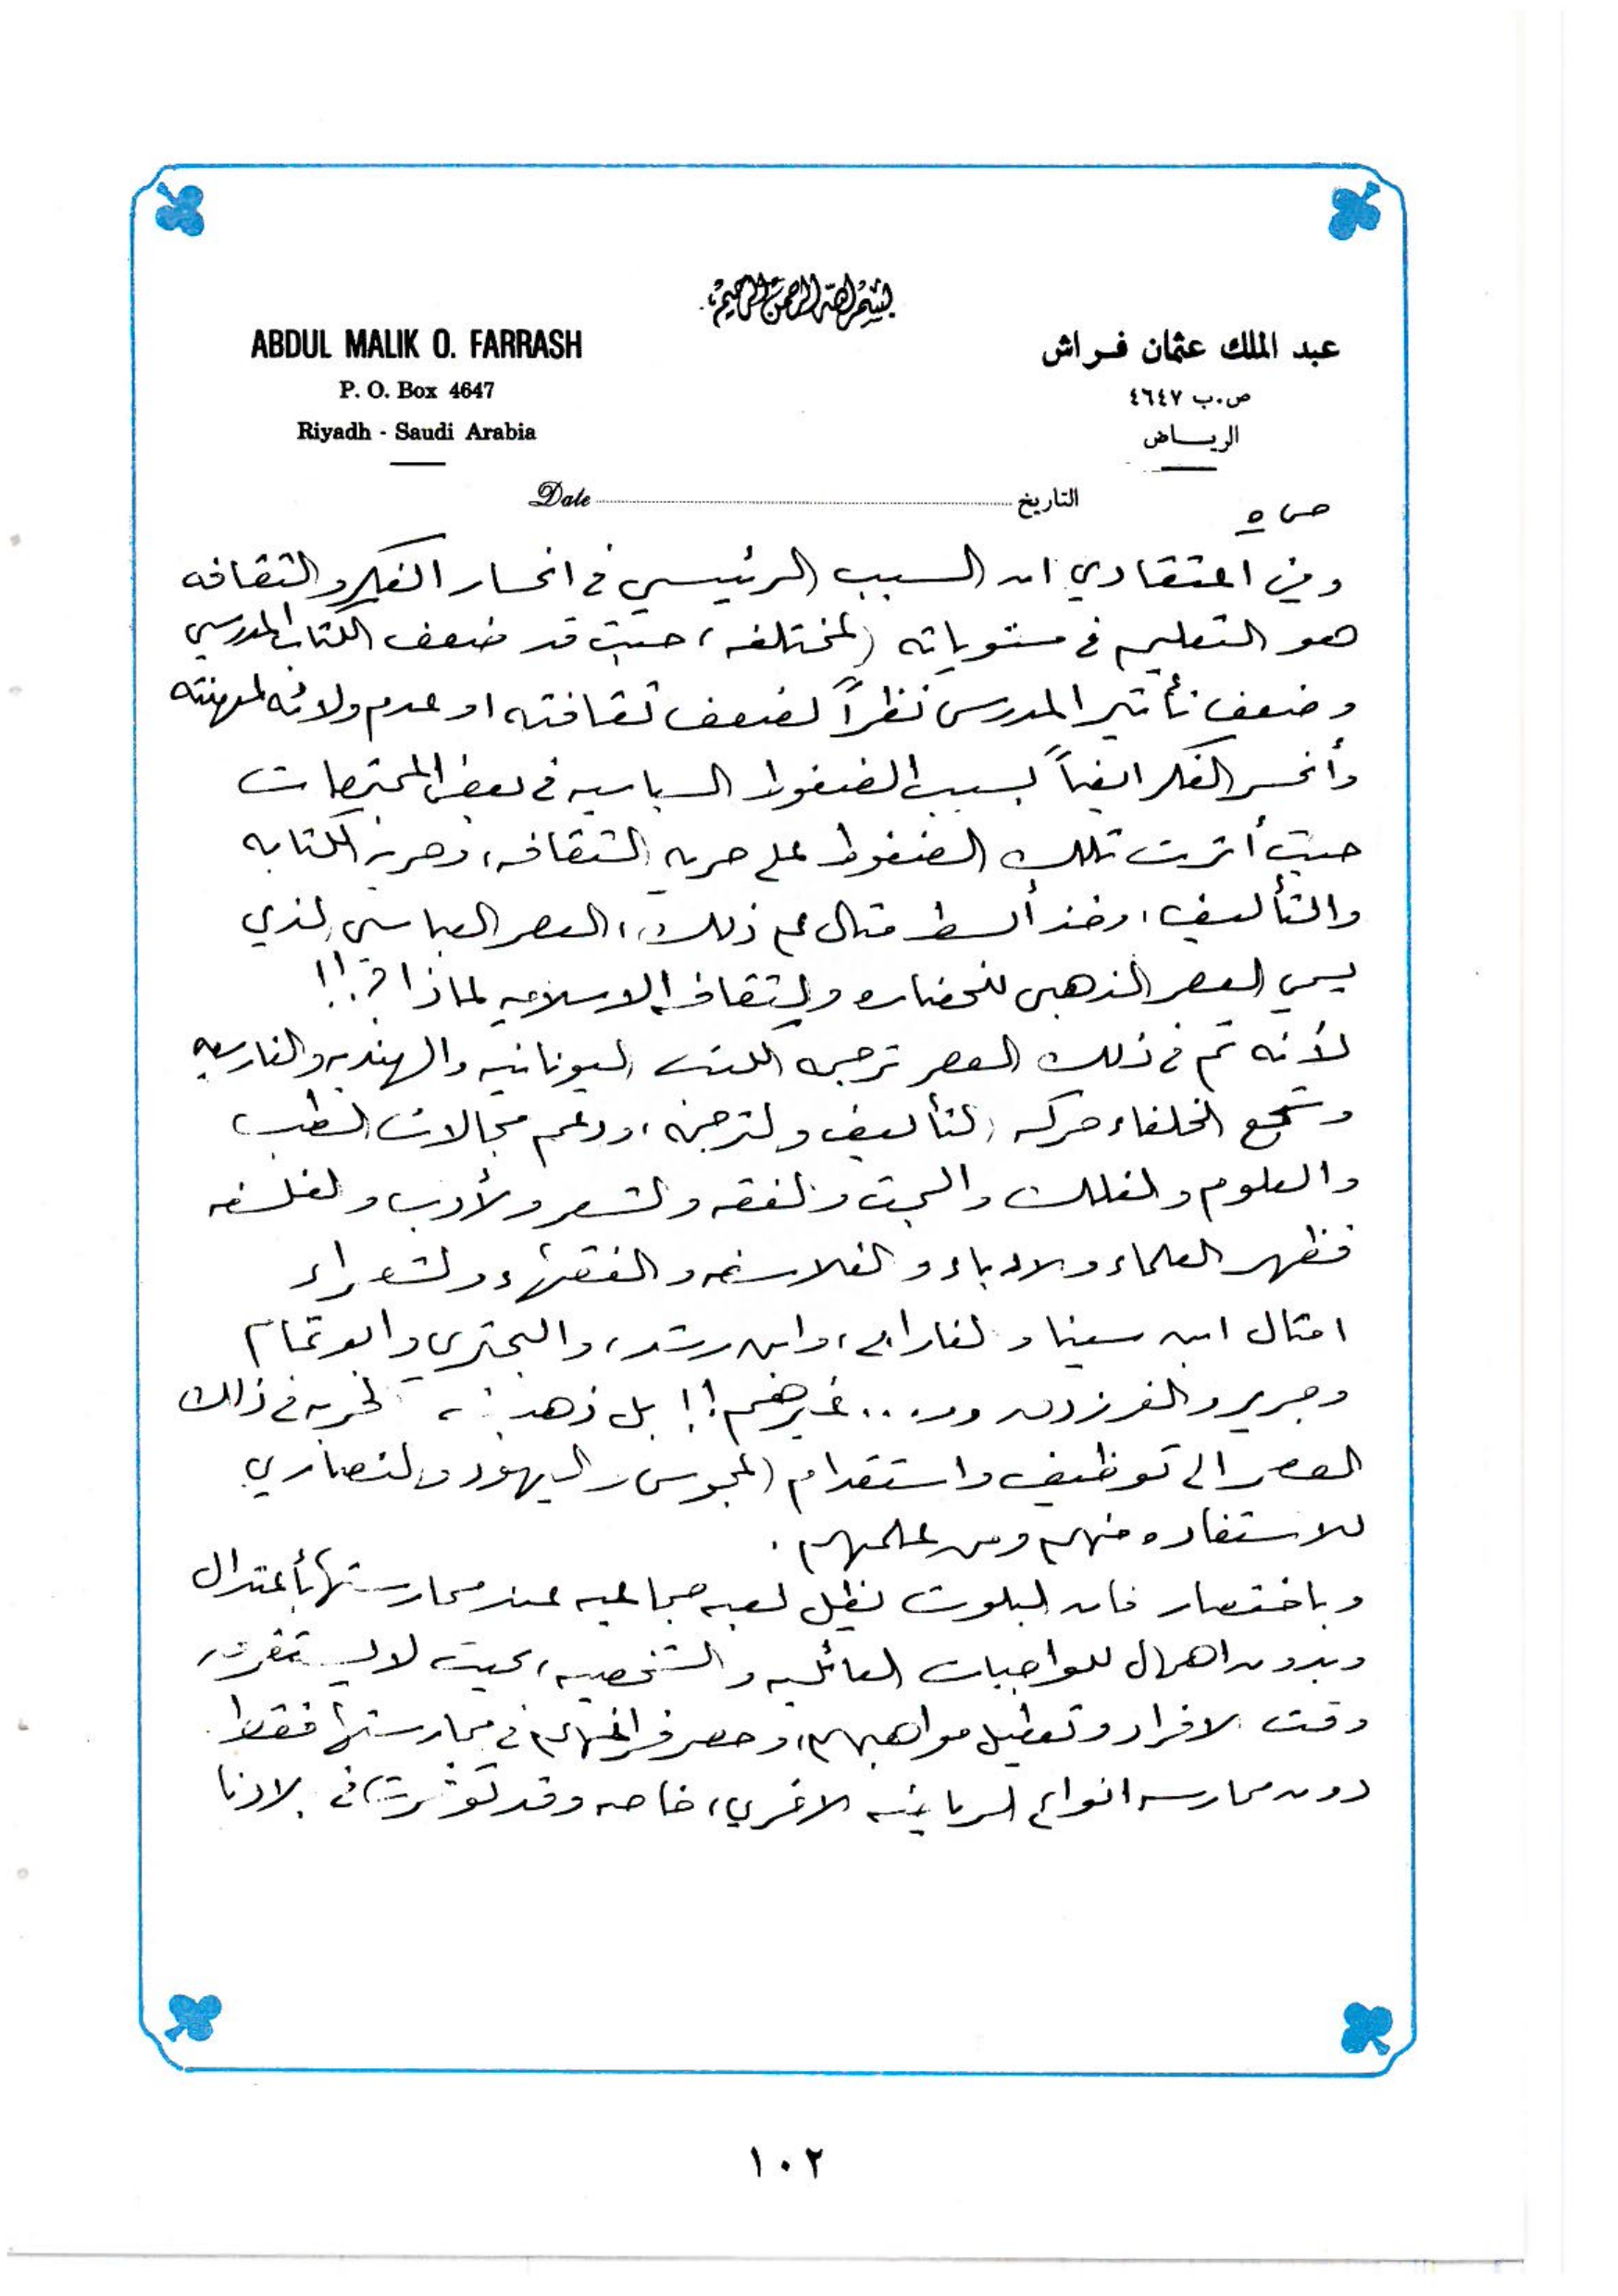 بسم الله الرحمن الرحيم
ABDUL MALIK O. FARRASH
عبد الملك عثمان فراش
P. O. Box 4647
ص.ب ٤٦٤٧
Riyadh - Saudi Arabia
الرياض
Date التاريخ
ص ٥
وفي اعتقادي ان السبب الرئيسي في انحسار الفكر والثقافه
هو التعليم في مستوياته المختلفه، حيث قد ضعف الكتاب المدرسي
وضعف تأثير المدرس نظراً لضعف ثقافته او عدم ولائه لمهنته
وأنحسر الفكر ايضاً بسبب الضغوط السياسيه في بعض المجتمعات
حيث أثرت تلك الضغوط على حريه الثقافه، وحرية الكتابه
والتأليف، وخذ أبسط مثال على ذلك، العصر العباسي الذي
يسمي العصر الذهبي للحضاره والثقافه الاسلاميه لماذا؟!!
لأنه تم في ذلك العصر ترجمه الكتب اليونانيه والهنديه والفارسيه
وشجع الخلفاء حركه التأليف والترجمه، ودعم مجالات الطب
والعلوم والفلك والبحث والفقه والشعر والأدب والفلسفه
فظهر العلماء والادباء والفلاسفه والفقهاء والشعراء
امثال ابن سينا والفارابي، وابن رشد، والبحتري وابوتمام
وجرير والفرزدق و... غيرهم!! بل ذهبت الحريه في ذلك
العصر الى توظيف واستقدام المجوس واليهود والنصاري
للاستفاده منهم ومن علمهم.
وباختصار فان البلوت تظل لعبه جماعيه عند ممارستها بأعتدال
وبدون اهمال للواجبات العائليه والشخصيه، بحيث لا يستغرق
وقت الافراد وتعطيل مواهبهم، وحصر فراغهم في ممارستها فقط
دون ممارسه انواع الرياضه الاخري، خاصه وقد توفرت في بلادنا
١٠٢